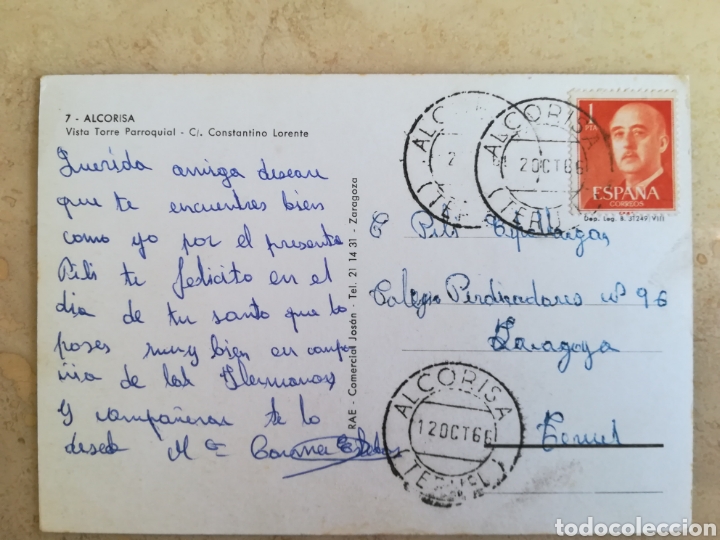 7 - ALCORISA
Vista Torre Parroquial - C/. Constantino Lorente
Querida amiga deseare
que te encuentres bien
como yo por el presente
Pili te felicito en el
dia de tu santo que lo
pases muy bien en compa
ñia de las Hermanas
y compañeras te lo
desea Mª Carmen
RAE - Comercial Josán - Tel. 21 14 31 - Zaragoza
ALCORISA
2
(TER
ALCORISA
12OCT66
(TERUEL)
1
PTA
ESPAÑA
CORREOS
Dep. Leg. B. 37249 (VII)
Pili
Colegio Perdicadores nº 96
Zaragoza
Teruel
ALCORISA
12OCT66
(TERUEL)
todocoleccion